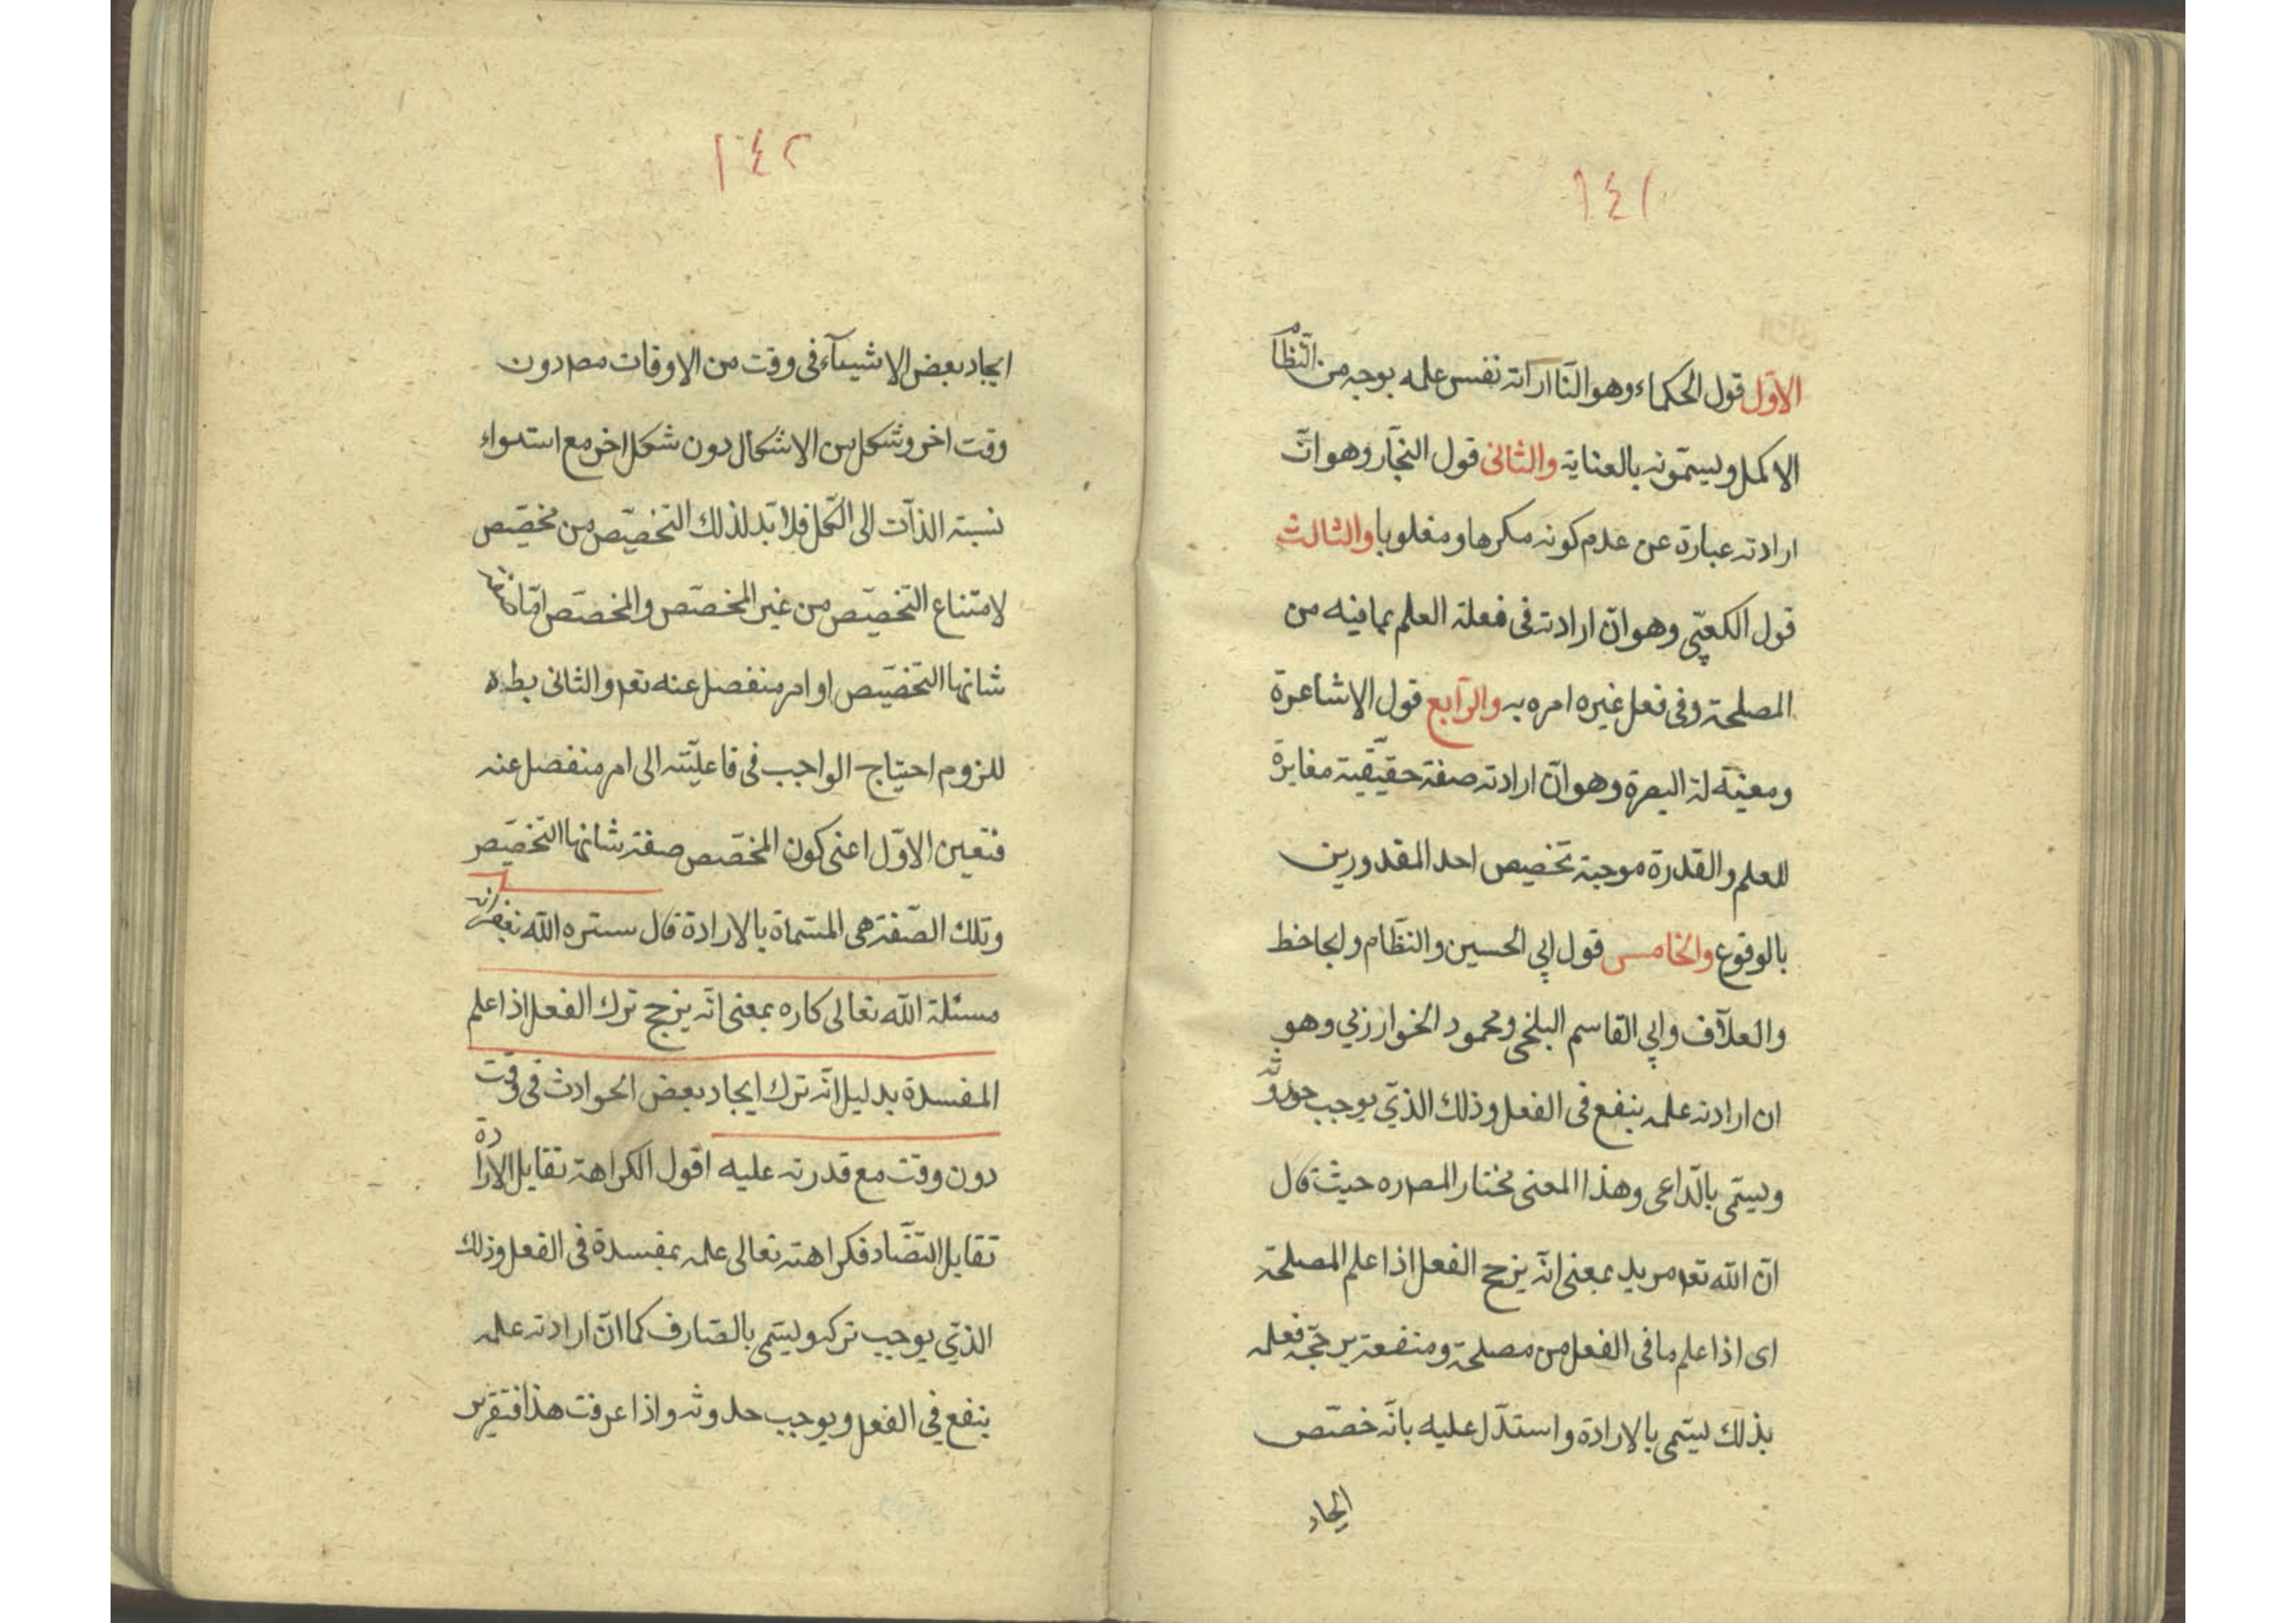 ١٤١
الاوّل قول الحكماء وهو انّ ارادته نفس علمه بوجه من النّظام
الاكمل ويسمّونه بالعناية والثانى قول النجّار وهو انّ
ارادته عبارة عن عدم كونه مكرها ومغلوبا والثالث
قول الكعبّي وهو انّ ارادته فى فعله العلم بما فيه من
المصلحة وفى فعل غيره امره به والرّابع قول الاشاعرة
البصرة وهو انّ ارادته صفة حقيقيّة مغايرة
للعلم والقدرة موجبة تخصيص احد المقدورين
بالوقوع والخامس قول ابي الحسين والنظّام والجاحظ
والعلّاف وابي القاسم البلخي ومحمود الخوارزمي وهو
ان ارادته علمه بنفع فى الفعل وذلك الذّي يوجب
ويسمّى بالدّاعى وهذا المعنى مختار المصره حيث قال
انّ الله تعم مريد بمعنى انّه يرجح الفعل اذا علم المصلحة
اى اذا علم ما فى الفعل من مصلحة ومنفعة يرجّح فعله
بذلك يسمّى بالارادة واستدّل عليه بانّه خصّص
ايجاد
١٤٢
ايجاد بعض الاشيآء فى وقت من الاوقات مصه دون
وقت اخر وشكل من الاشكال دون شكل اخر مع استواء
نسبة الذآت الى الكّل فلا بدّ لذلك التخصيّص من مخصّص
لامتناع التخصيّص من غير المخصّص والمخصّص امّا
شانها التخصيص او امر منفصل عنه تعم والثانى بط
للزوم احتياج الواجب فى فاعليّته الى امر منفصل عنه
فتعين الاوّل اعنى كون المخصّص صفة شانها التخصيّص
وتلك الصّفة هى المسّماة بالارادة قال ستره الله بغفرانه
مسئلة الله تعالى كاره بمعنى انّه يرجح ترك الفعل اذا علم
المفسدة بدليل انّه ترك ايجاد بعض الحوادث فى وقت
دون وقت مع قدرته عليه اقول الكراهة تقابل الارادة
تقابل التضّاد فكراهته تعالى علمه بمفسدة فى الفعل وذلك
الذّي يوجب تركه ويسّمى بالصّارف كما انّ ارادته علمه
بنفع في الفعل ويوجب حدوثه واذا عرفت هذا فتقرير